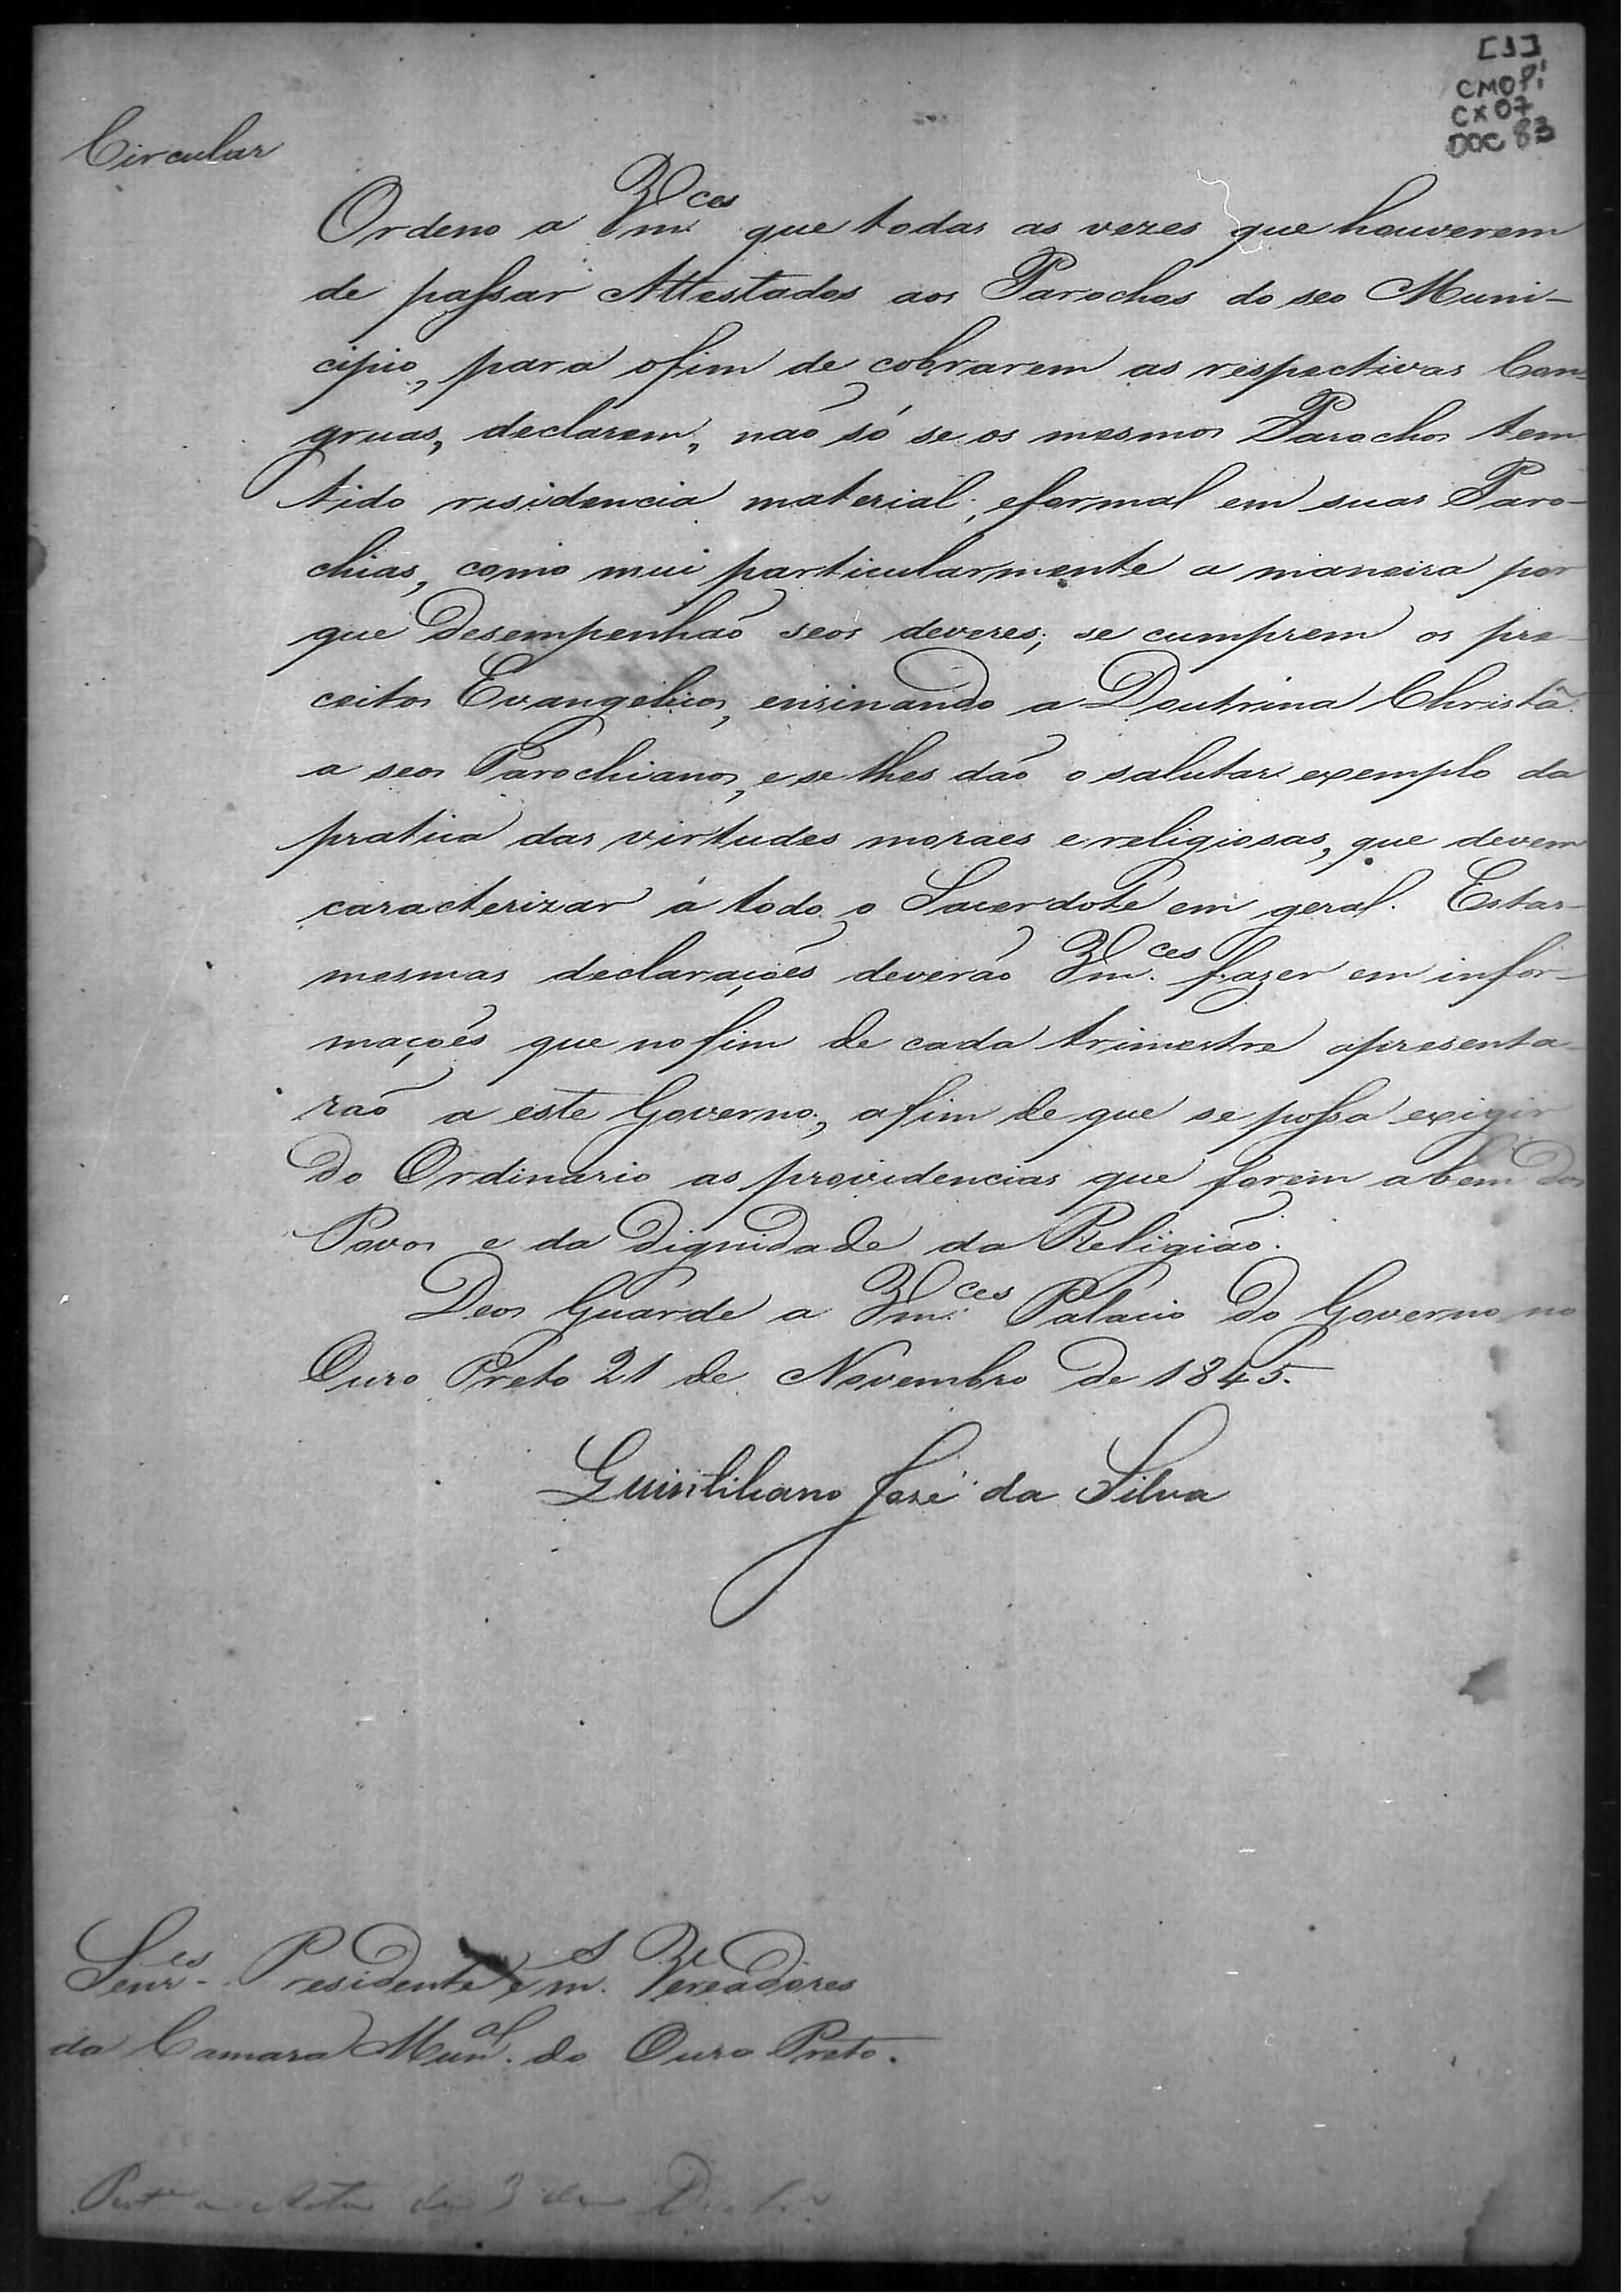 [1]
CMOPi
CX07
DOC 83
Circular
Ordeno a Vm.ces que todas as vezes que houverem
de passar Attestados aos Parochos do seo Muni-
cipio, para o fim de cobrarem as respectivas Con-
gruas, declarem, não só se os mesmos Parochos tem
tido residencia material, e formal em suas Paro-
chias, como mui particularmente a maneira por
que desempenhão seos deveres; se cumprem os pre-
ceitos Evangelicos, ensinando a Doutrina Christã
a seos Parochianos, e se lhes dão o salutar exemplo da
pratica das virtudes moraes e religiosas, que devem
caracterizar á todo o Sacerdote em geral. Estas
mesmas declarações deverão Vm.ces fazer em infor-
mações que no fim de cada trimestre apresenta-
rão a este Governo, a fim de que se possa exigir
do Ordinario as providencias que forem a bem dos
Povos e da dignidade da Religião.
Deos Guarde a Vm.ces Palacio do Governo no
Ouro Preto 21 de Novembro de 1845.
Quintiliano José da Silva
Senr.es Presidente e m.s Vereadores
da Camara Mun.al do Ouro Preto.
a Acta de 3 de